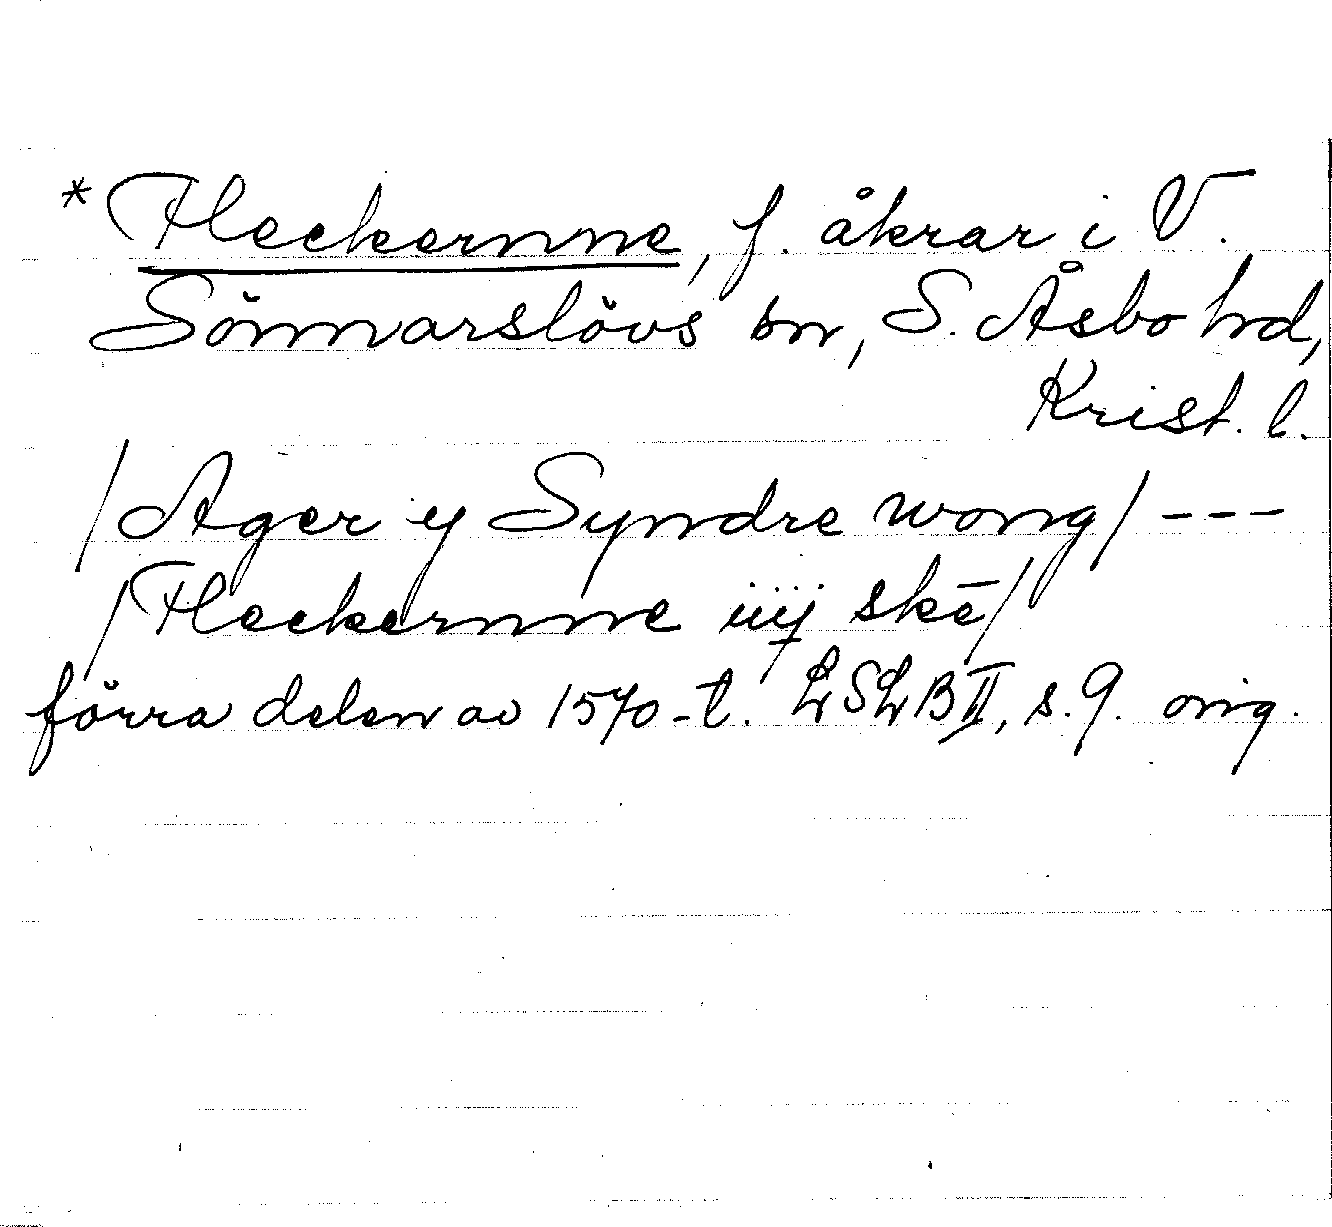 * Fleckernne, f. åkrar i V.
Sönnarslövs sn, S. Åsbo hd,
Krist. l.
/Ager y Syndre wong/ ---
/Fleckernne iiij ske/
förra delen av 1570-t. LSLB II, s. 9. orig.